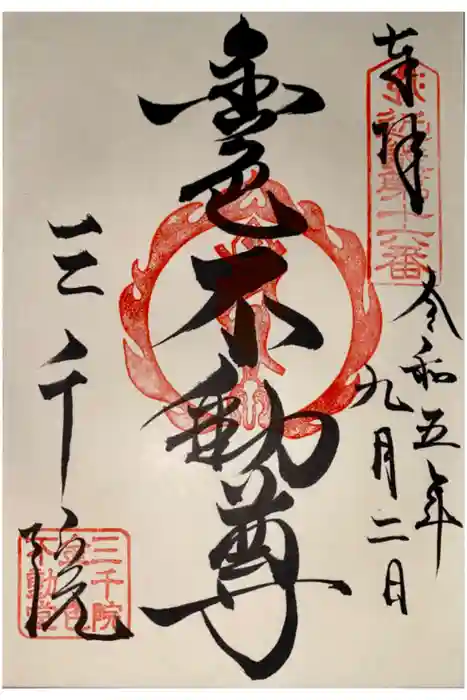 奉拝
近畿第十六番
令和五年
九月二日
金色不動尊
三千院
三千院
金色
不動堂